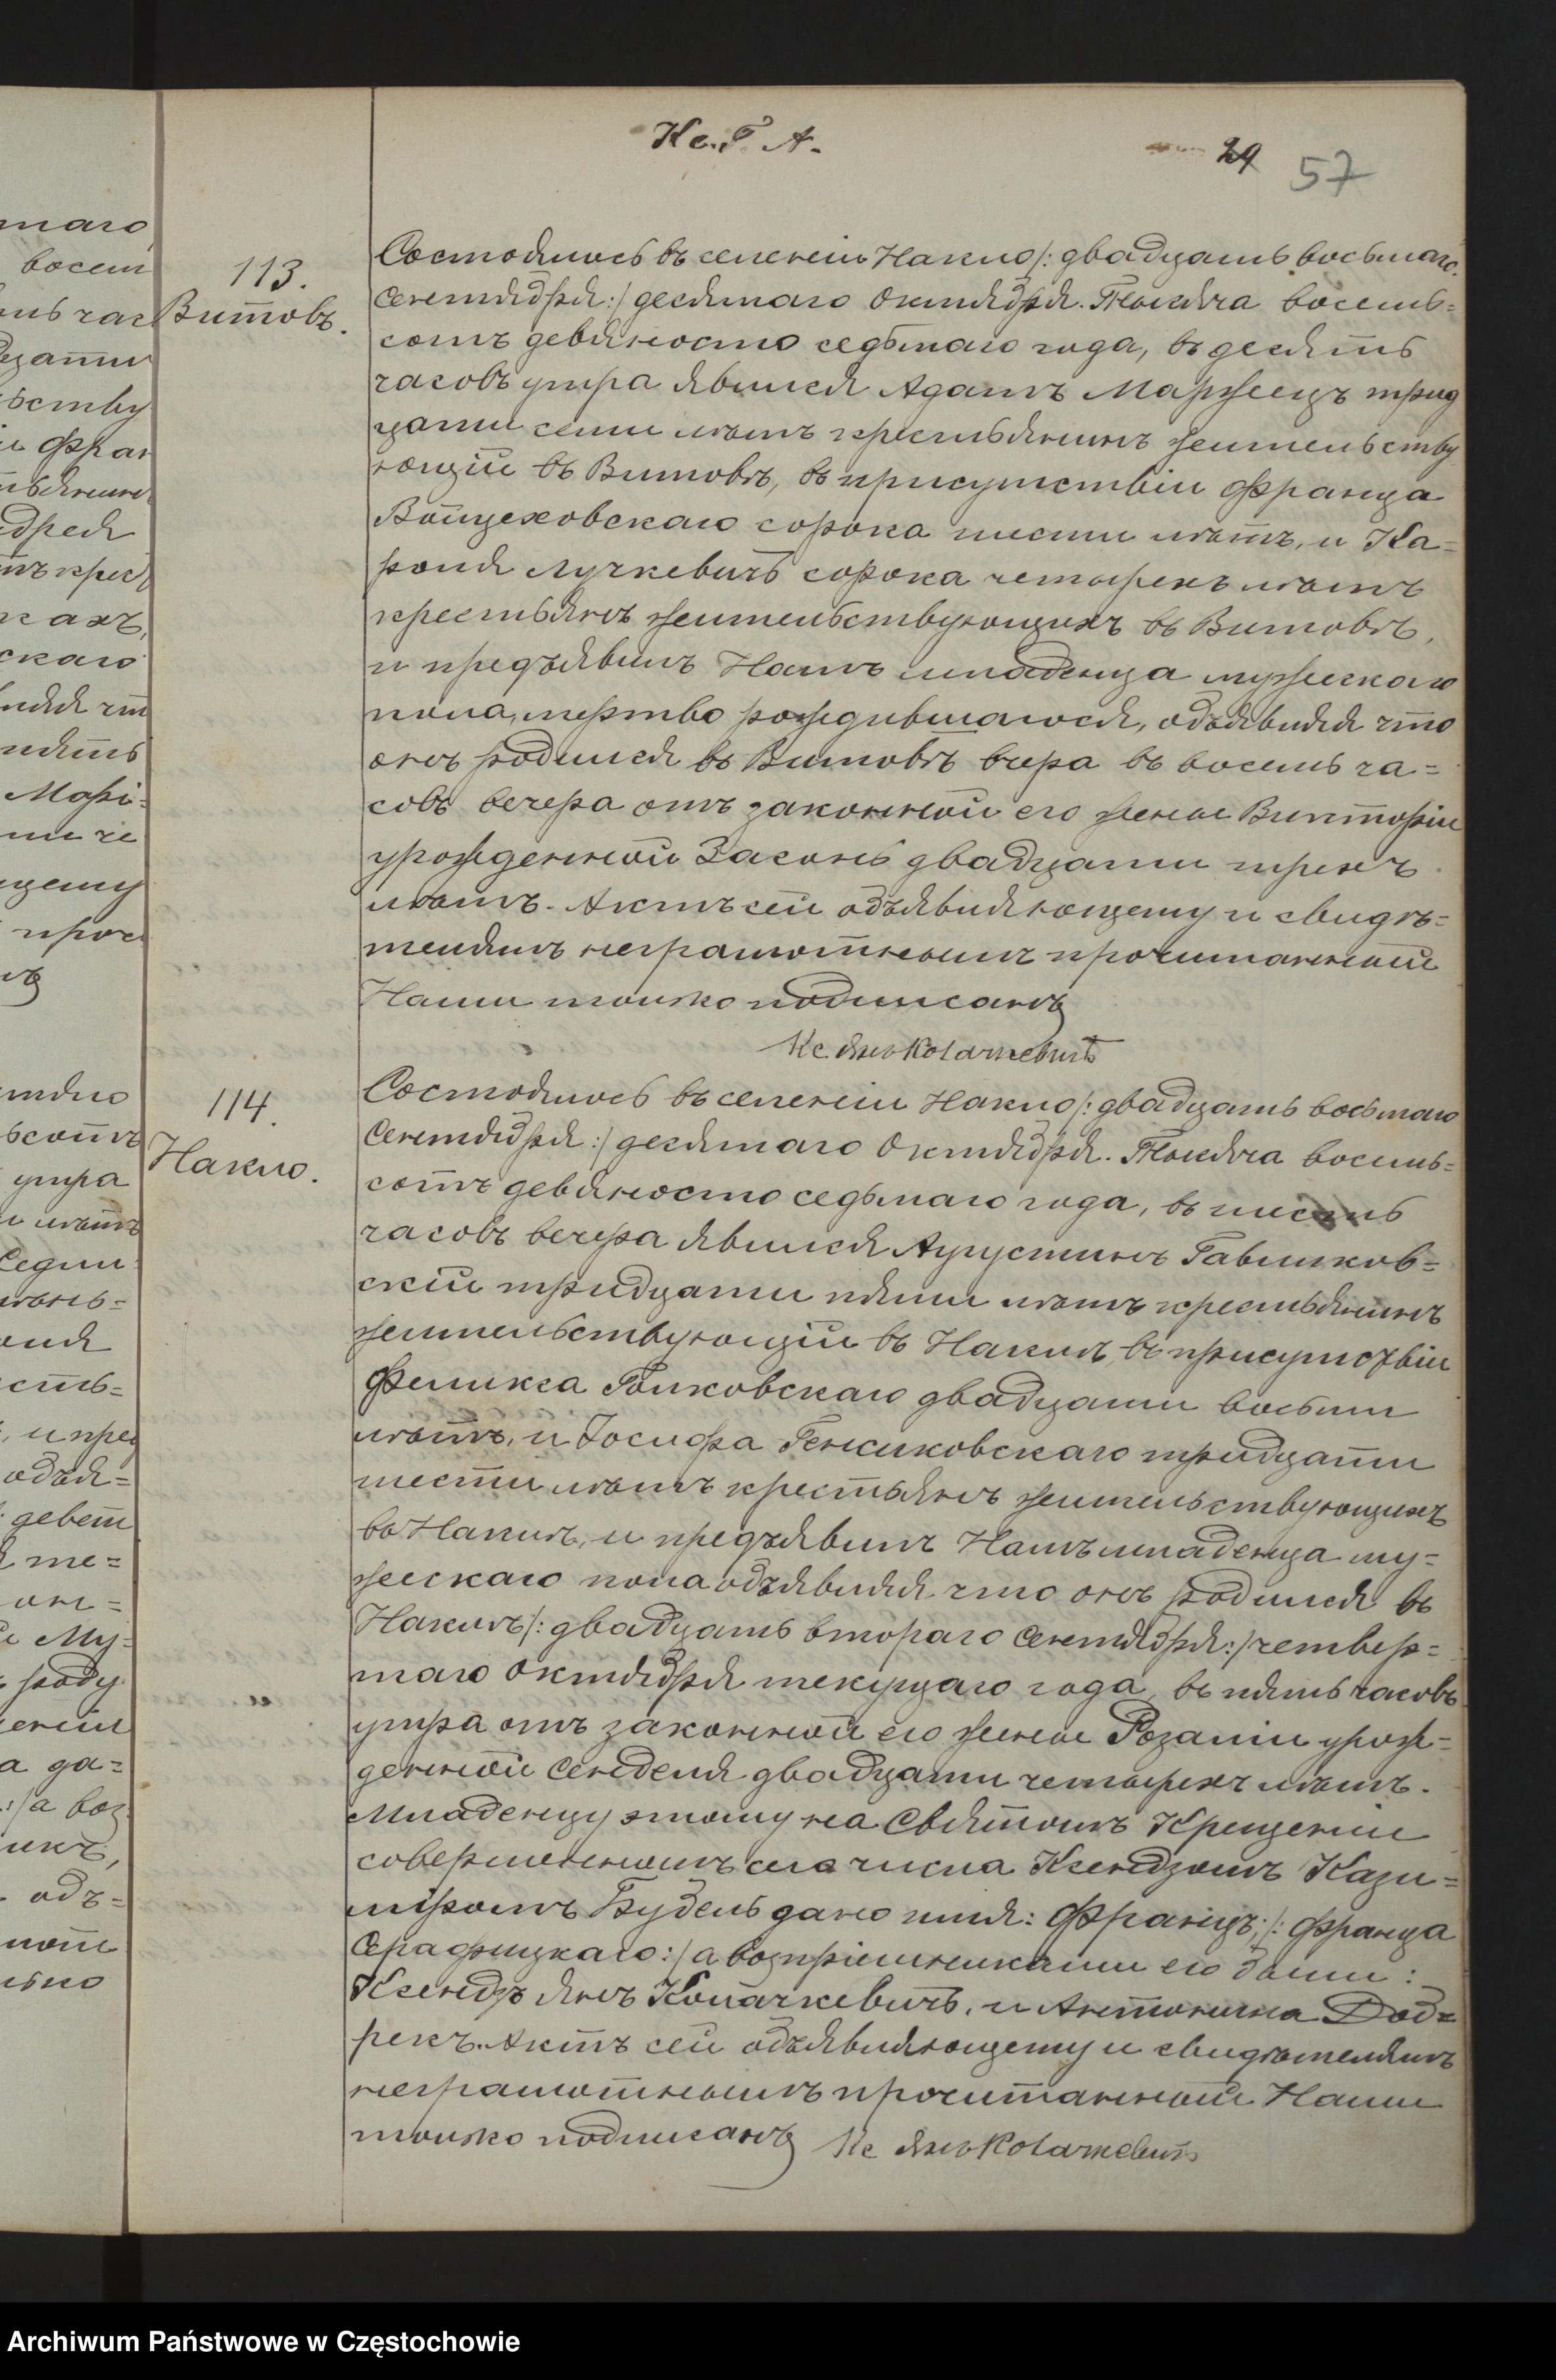 Кс. Г. А.
29 57
113.
Витовъ.
Состоялось въ селеніи Накло /: двадцать восьмаго
Сентября :/ десятаго Октября. Тысяча восемь=
сотъ девяносто седьмаго года, въ десять
часовъ утра явился Адамъ Маржецъ трид
цати семи лѣтъ крестьянинъ жительству
ющій въ Витовѣ, въ присутствіи Франца
Войцеховскаго сорока шести лѣтъ, и Ка=
роля Лучкевичъ сорока четырехъ лѣтъ
крестьянъ жительствующихъ въ Витовѣ,
и предъявилъ Намъ младенца мужескаго
пола, мертво рождившагося, объявляя что
онъ родился въ Витовѣ вчера въ восемь ча=
совъ вечера отъ законной его жены Викторіи
урожденной Засонь двадцати трехъ
лѣтъ. Актъ сей объявляющему и свидѣ=
телямъ неграмотнымъ прочитанный
Нами только подписанъ
Кс. Янъ Колачкевичъ
114.
Накло.
Состоялось въ селеніи Накло /: двадцать восьмаго
Сентября :/ десятаго Октября. Тысяча восемь=
сотъ девяносто седьмаго года, въ шесть
часовъ вечера явился Аугустинъ Гавликов=
скій тридцати пяти лѣтъ крестьянинъ
жительствующій въ Наклѣ, въ присутствіи
Феликса Голковскаго двадцати восьми
лѣтъ, и Іосифа Генсиковскаго тридцати
шести лѣтъ крестьянъ жительствующихъ
въ Наклѣ, и предъявилъ Намъ младенца му=
жескаго пола объявляя что онъ родился въ
Наклѣ /: двадцать втораго Сентября :/ четвер=
таго Октября текущаго года, въ пять часовъ
утра отъ законной его жены Розаліи урож=
денной Сенделя двадцати четырехъ лѣтъ.
Младенцу этому на Святомъ Крещеніи
совершенномъ сего числа Ксендзомъ Кази=
міромъ Будель дано имя: Францъ; /: Франца
Серафицкаго :/ а воспріемниками его были:
Ксендзъ Янъ Колачкевичъ, и Антонина Доб=
рекъ. Актъ сей объявляющему и свидѣтелямъ
неграмотнымъ прочитанный Нами
только подписанъ Кс Янъ Колачкевичъ
Archiwum Państwowe w Częstochowie